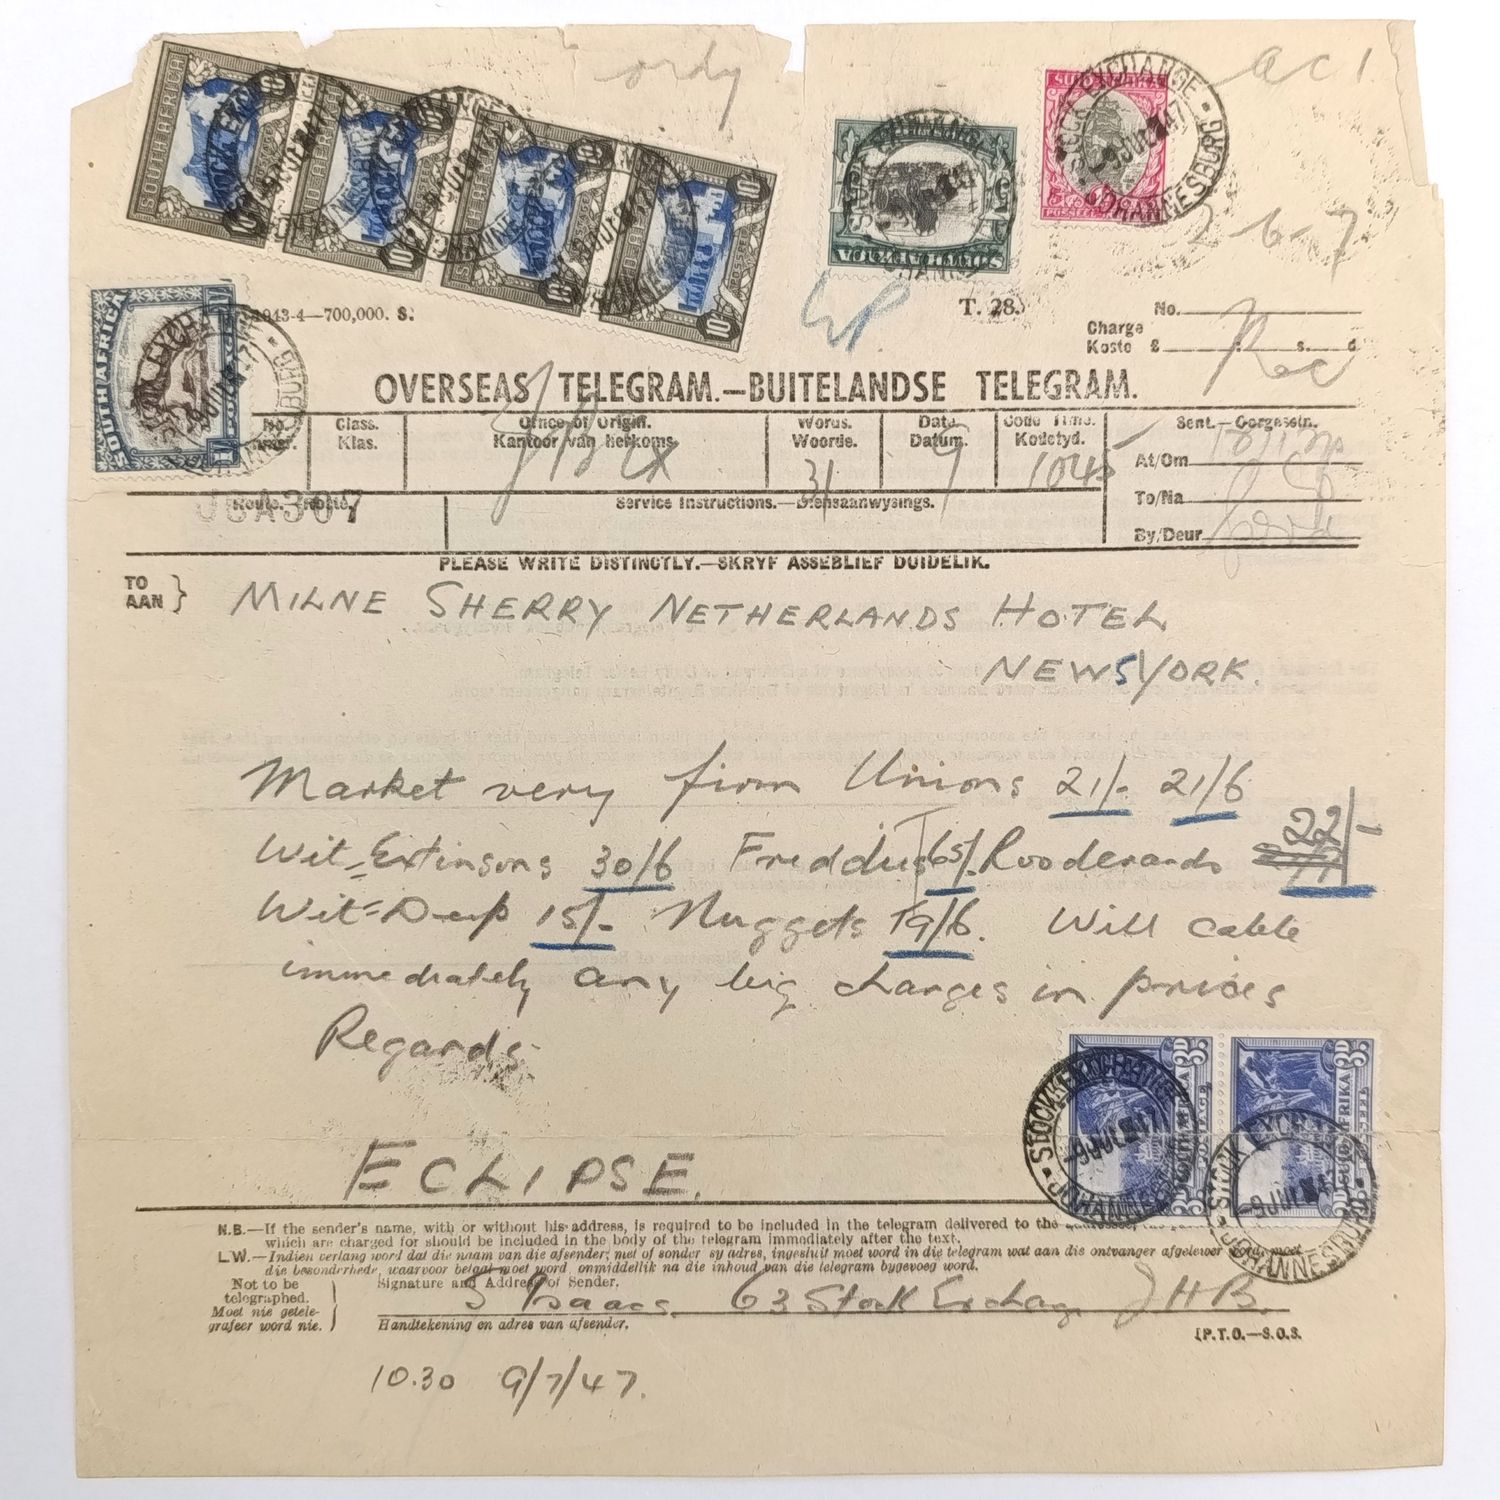 ordy
ac 1
SOUTH AFRICA
10/-
SUID-AFRIKA
10/-
SOUTH AFRICA
10/-
10/-
5/-
SOUTH AFRICA
POSSEËL
STOCK EXCHANGE
JOHANNESBURG
9 JUL 47
2-6-7
SOUTH AFRICA
POSTAGE
1943-4—700,000. S.
T. 28.
No.
Charge
Koste £ s. d.
Rec
OVERSEAS TELEGRAM.—BUITELANDSE TELEGRAM.
No.
Class.
Klas.
Office of Origin.
Kantoor van herkoms.
Words.
Woorde.
31
Date
Datum.
9
Code Time.
Kodetyd.
1045
Sent.—Oorgesein.
At/Om
To/Na
By/Deur
JBA307
Route.—Roete.
Service Instructions.—Diensaanwysings.
PLEASE WRITE DISTINCTLY.—SKRYF ASSEBLIEF DUIDELIK.
TO
AAN
MILNE SHERRY NETHERLANDS HOTEL
NEWYORK.
Market very firm Unions 21/- 21/6
Wit Extinsons 30/6 Freddies 65/- Rooderands 22/-
Wit=Deep 15/- Nuggets 19/6. Will cable
immediately any big changes in prices
Regards
ECLIPSE.
3D SOUTH AFRICA POSTAGE
3D SUID-AFRIKA POSSEEL
STOCK EXCHANGE
JOHANNESBURG
N.B.—If the sender's name, with or without his address, is required to be included in the telegram delivered to the
which are charged for should be included in the body of the telegram immediately after the text.
L.W.—Indien verlang word dat die naam van die afsender, met of sonder sy adres, ingesluit moet word in die telegram wat aan die ontvanger afgelewer word, moet
die besonderhede, waarvoor betaal moet word, onmiddellik na die inhoud van die telegram bygevoeg word.
Not to be
telegraphed.
Moet nie getele-
grafeer word nie.
Signature and Address of Sender.
S Isaacs. 63 Stock Exchange JHB.
Handtekening en adres van afsender.
[P.T.O.—S.O.S.
10.30 9/7/47.